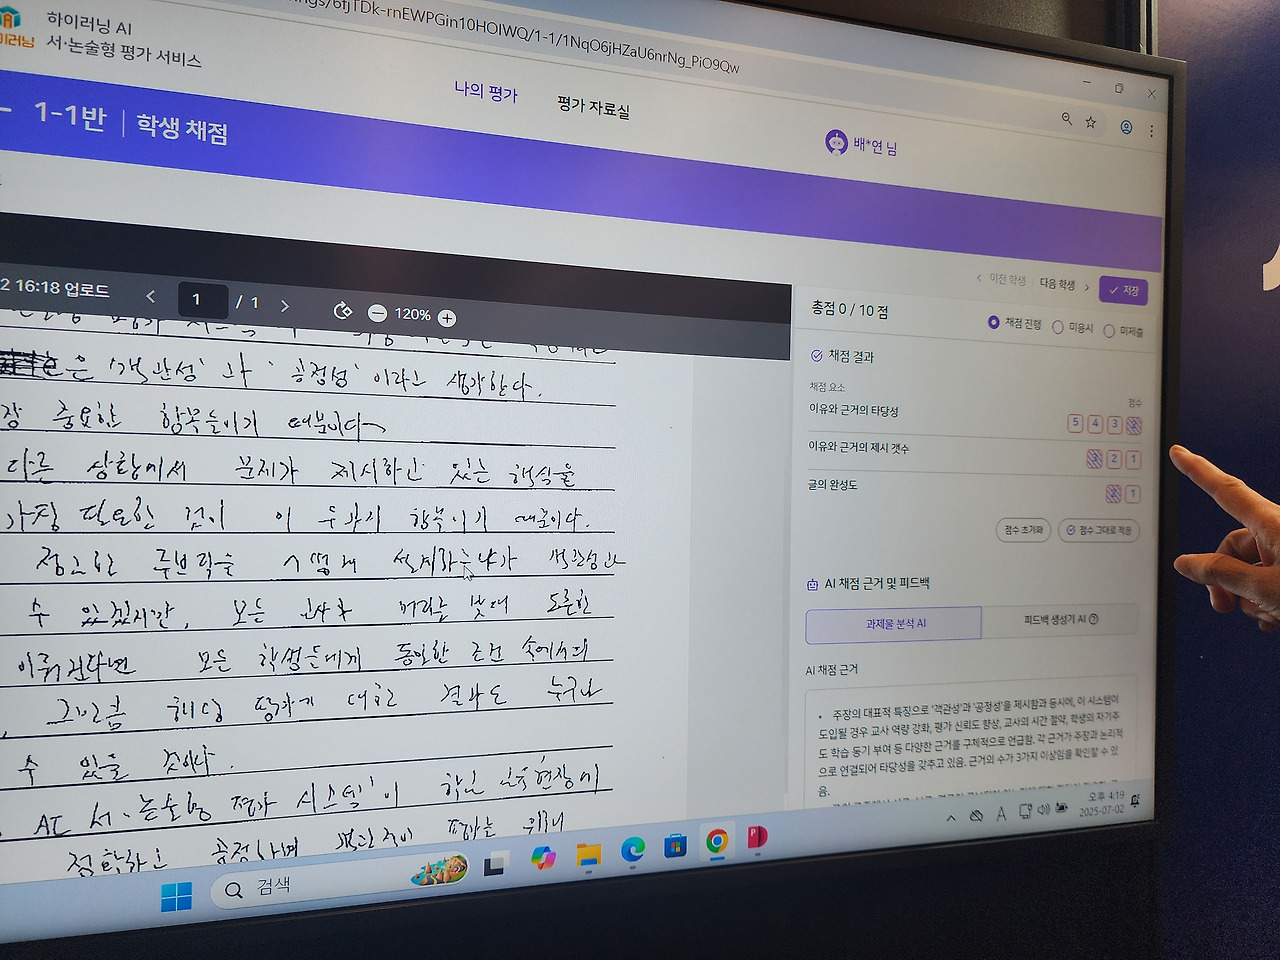 ngs/6fjTDk-rnEWPGin10HOIWQ/1-1/1NqO6jHZaU6nrNg_PiO9Qw
하이러닝 AI
서·논술형 평가 서비스
이러닝
나의 평가
평가 자료실
배*연 님
1-1반 | 학생 채점
2 16:18 업로드
1 / 1
120%
이전 학생
다음 학생
저장
총점 0 / 10 점
채점 진행
미응시
미제출
채점 결과
채점 요소
점수
이유와 근거의 타당성
5 4 3 2
이유와 근거의 제시 갯수
3 2 1
글의 완성도
2 1
점수 초기화
점수 그대로 적용
AI 채점 근거 및 피드백
과제물 분석 AI
피드백 생성기 AI
AI 채점 근거
• 주장의 대표적 특징으로 '객관성'과 '공정성'을 제시함과 동시에, 이 시스템이
도입될 경우 교사 역량 강화, 평가 신뢰도 향상, 교사의 시간 절약, 학생의 자기주
도 학습 동기 부여 등 다양한 근거를 구체적으로 언급함. 각 근거가 주장과 논리적
으로 연결되어 타당성을 갖추고 있음. 근거의 수가 3가지 이상임을 확인할 수 있
음.
은 '객관성' 과 '공정성' 이라고 생각한다.
장 중요한 항목들이기 때문이다
다른 상황에서 문제가 제시하고 있는 해석을
가장 필요한 것이 이 두가지 항목이기 때문이다.
정교한 루브릭을 어떻게 설계하느냐가 객관성과
수 있겠지만, 모든 교사가 머리를 맞대 도출한
이뤄진다면 모든 학생들에게 동일한 조건 속에서의
그만큼 해당 평가에 대한 결과도 누구나
수 있을 것이다.
AI 서·논술형 평가 시스템'이 학교 교육현장에
정확하고 공정하며
검색
오후 4:19
2025-07-02